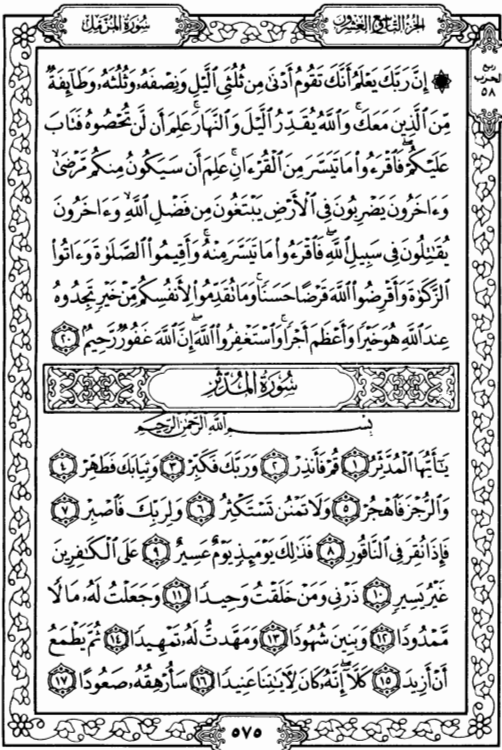 سُورَةُ المُزَّمِّل
الجزء التاسع والعشرون
ربع
الحزب
٥٨
۞ إِنَّ رَبَّكَ يَعْلَمُ أَنَّكَ تَقُومُ أَدْنَىٰ مِن ثُلُثَيِ ٱلَّيْلِ وَنِصْفَهُۥ وَثُلُثَهُۥ وَطَآئِفَةٌ
مِّنَ ٱلَّذِينَ مَعَكَۚ وَٱللَّهُ يُقَدِّرُ ٱلَّيْلَ وَٱلنَّهَارَۚ عَلِمَ أَن لَّن تُحْصُوهُ فَتَابَ
عَلَيْكُمْۖ فَٱقْرَءُوا۟ مَا تَيَسَّرَ مِنَ ٱلْقُرْءَانِۚ عَلِمَ أَن سَيَكُونُ مِنكُم مَّرْضَىٰۙ
وَءَاخَرُونَ يَضْرِبُونَ فِى ٱلْأَرْضِ يَبْتَغُونَ مِن فَضْلِ ٱللَّهِۙ وَءَاخَرُونَ
يُقَـٰتِلُونَ فِى سَبِيلِ ٱللَّهِۖ فَٱقْرَءُوا۟ مَا تَيَسَّرَ مِنْهُۚ وَأَقِيمُوا۟ ٱلصَّلَوٰةَ وَءَاتُوا۟
ٱلزَّكَوٰةَ وَأَقْرِضُوا۟ ٱللَّهَ قَرْضًا حَسَنًاۚ وَمَا تُقَدِّمُوا۟ لِأَنفُسِكُم مِّنْ خَيْرٍ تَجِدُوهُ
عِندَ ٱللَّهِ هُوَ خَيْرًا وَأَعْظَمَ أَجْرًاۚ وَٱسْتَغْفِرُوا۟ ٱللَّهَۖ إِنَّ ٱللَّهَ غَفُورٌ رَّحِيمٌۢ ٢٠
سُورَةُ المُدَّثِّر
بِسْمِ ٱللَّهِ ٱلرَّحْمَـٰنِ ٱلرَّحِيمِ
يَـٰٓأَيُّهَا ٱلْمُدَّثِّرُ ١ قُمْ فَأَنذِرْ ٢ وَرَبَّكَ فَكَبِّرْ ٣ وَثِيَابَكَ فَطَهِّرْ ٤
وَٱلرُّجْزَ فَٱهْجُرْ ٥ وَلَا تَمْنُن تَسْتَكْثِرُ ٦ وَلِرَبِّكَ فَٱصْبِرْ ٧
فَإِذَا نُقِرَ فِى ٱلنَّاقُورِ ٨ فَذَٰلِكَ يَوْمَئِذٍ يَوْمٌ عَسِيرٌ ٩ عَلَى ٱلْكَـٰفِرِينَ
غَيْرُ يَسِيرٍ ١٠ ذَرْنِى وَمَنْ خَلَقْتُ وَحِيدًا ١١ وَجَعَلْتُ لَهُۥ مَالًا
مَّمْدُودًا ١٢ وَبَنِينَ شُهُودًا ١٣ وَمَهَّدتُّ لَهُۥ تَمْهِيدًا ١٤ ثُمَّ يَطْمَعُ
أَنْ أَزِيدَ ١٥ كَلَّآۖ إِنَّهُۥ كَانَ لِـَٔايَـٰتِنَا عَنِيدًا ١٦ سَأُرْهِقُهُۥ صَعُودًا ١٧
٥٧٥